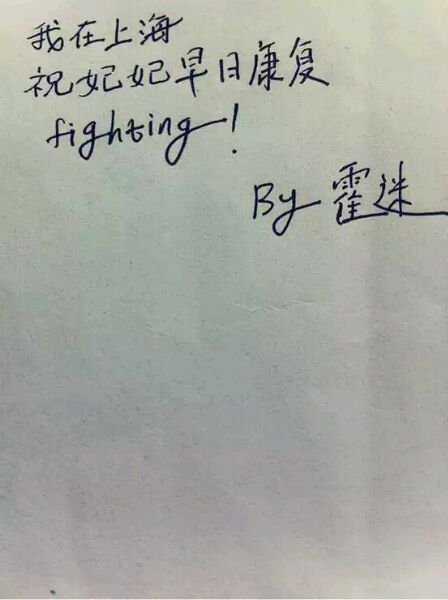 我在上海
祝妃妃早日康复
fighting!
By 霍迷